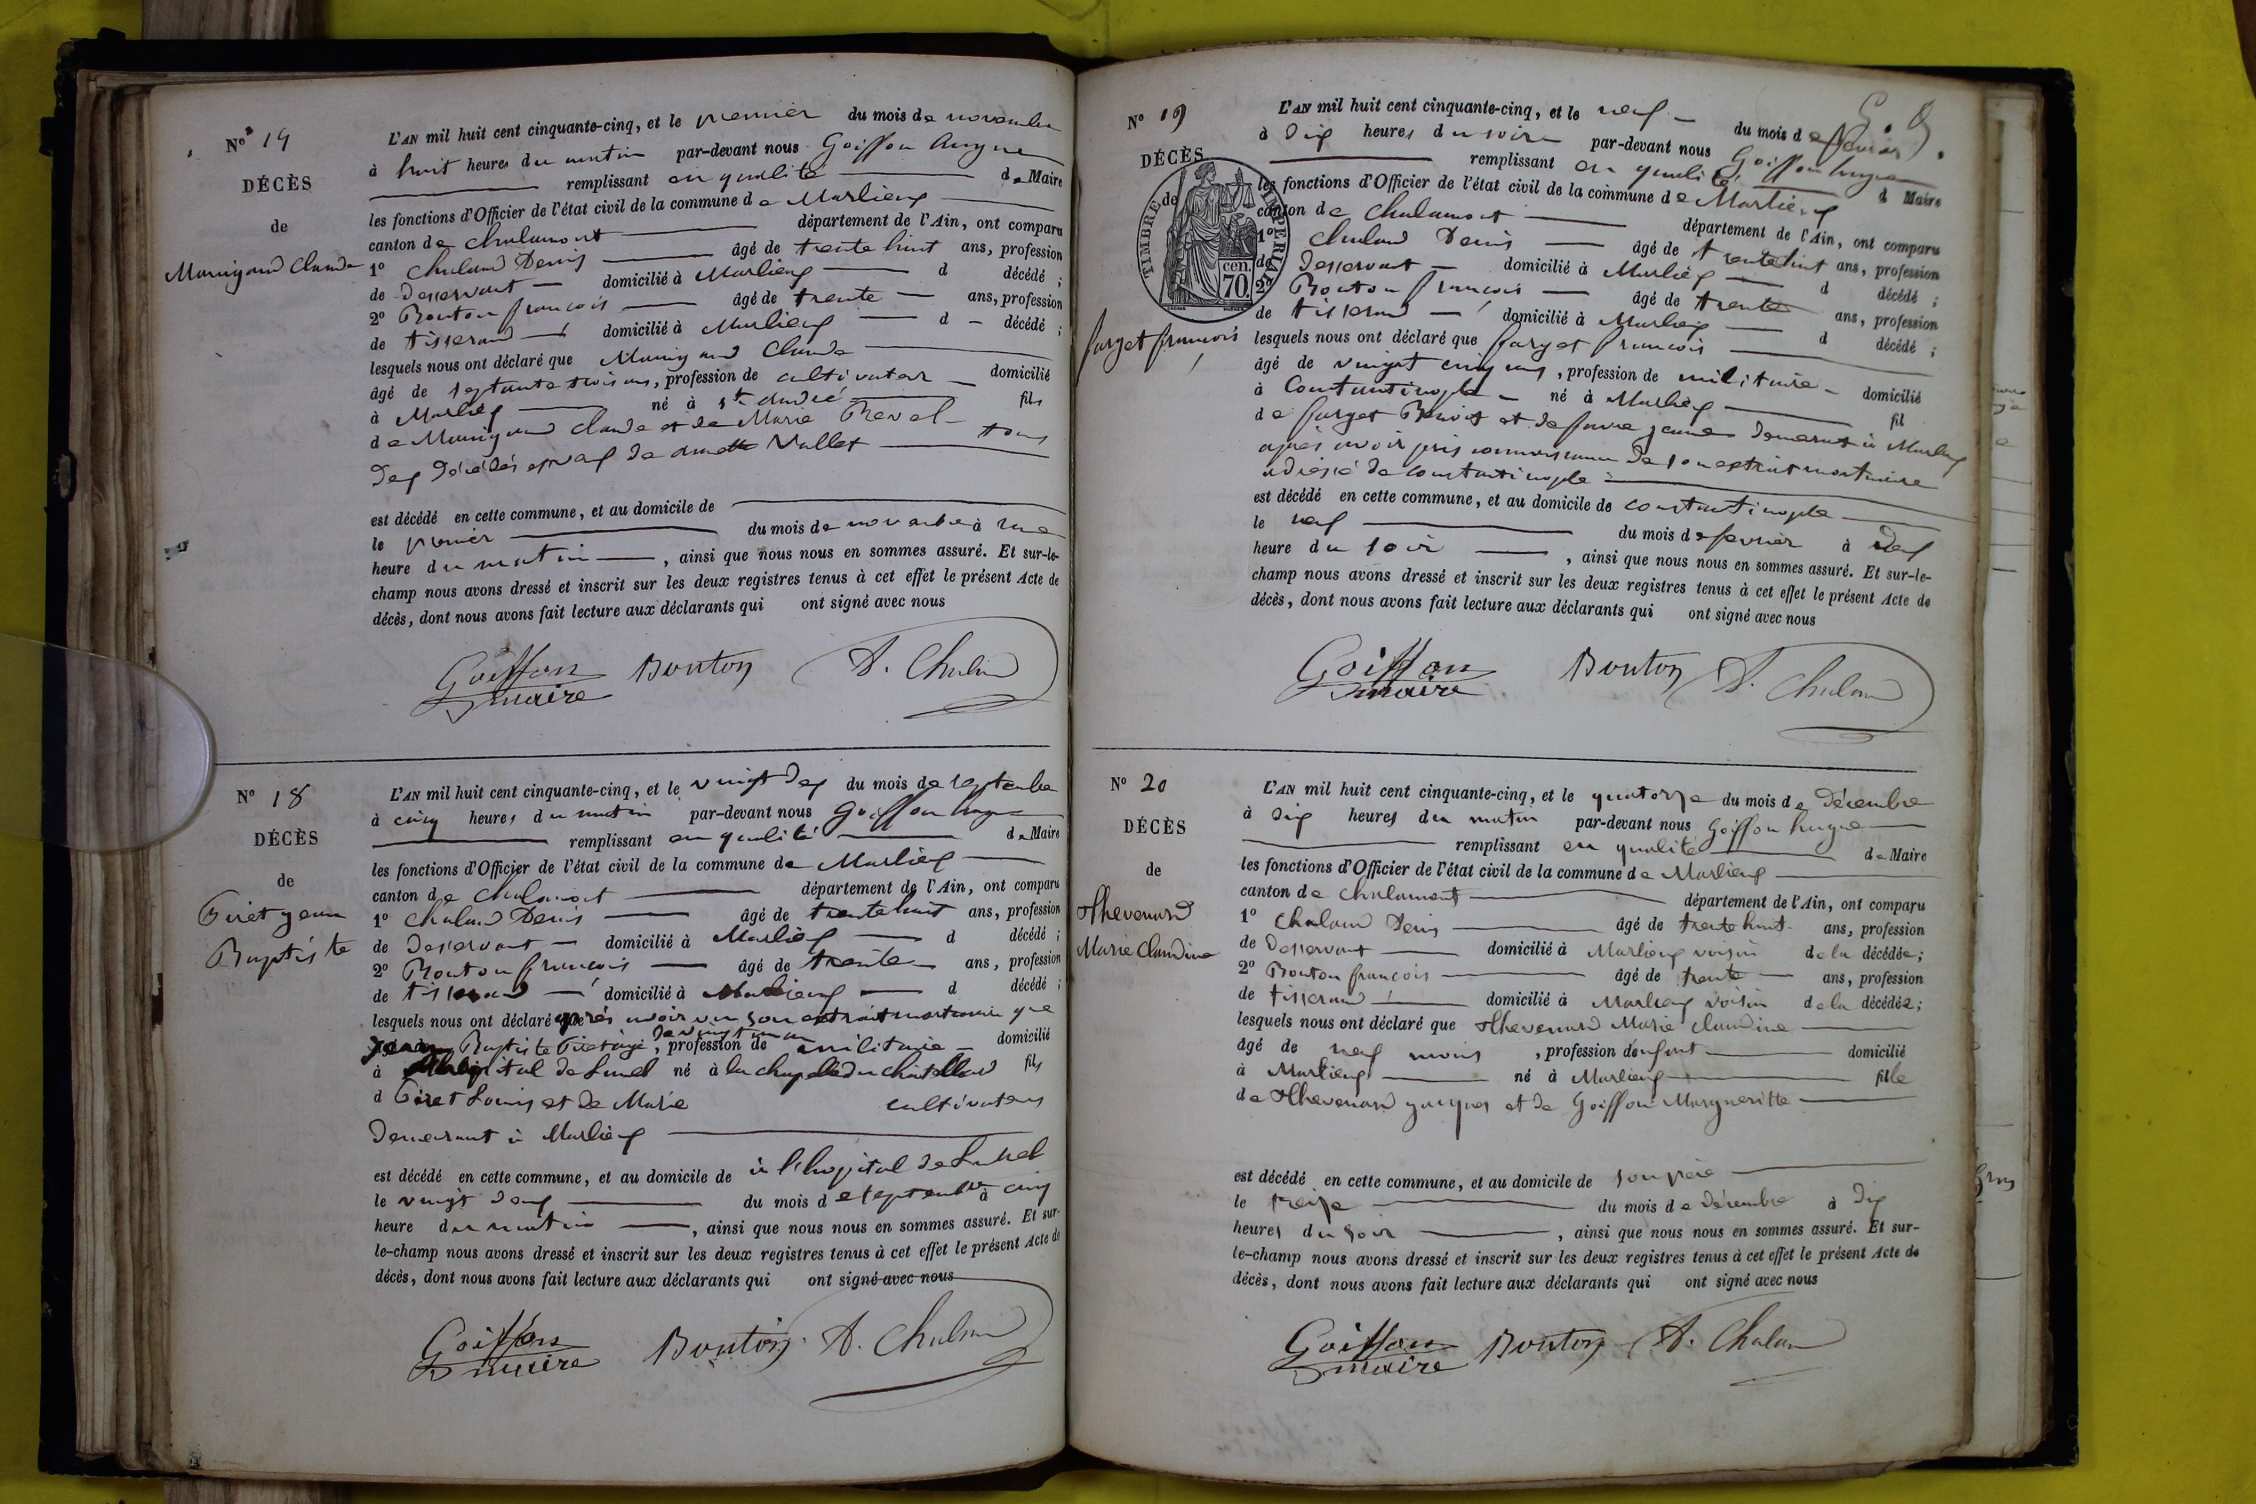 Nº 19
DÉCÈS
de
Manigand Claude
L'AN mil huit cent cinquante-cinq, et le premier du mois de novembre
à huit heures du matin par-devant nous Goiffon hugue
remplissant en qualité de Maire
les fonctions d'Officier de l'état civil de la commune de Marlieux
canton de chalamont département de l'Ain, ont comparu
1º chaland Denis âgé de trente huit ans, profession
de desservant domicilié à Marlieux d décédé ;
2º Bouton francois âgé de trente ans, profession
de tisserand domicilié à Marlieux d décédé ;
lesquels nous ont déclaré que Manigand Claude
âgé de septante trois ans, profession de cultivateur domicilié
à Marlieux né à st andré fils
de Manigand claude et de Marie Revel tous
deux décédés epveuf de Vallet
est décédé en cette commune, et au domicile de
le premier du mois de novembre à une
heure du matin , ainsi que nous nous en sommes assuré. Et sur-le-
champ nous avons dressé et inscrit sur les deux registres tenus à cet effet le présent Acte de
décès, dont nous avons fait lecture aux déclarants qui ont signé avec nous
Goiffon maire Bouton D. Chaland
Nº 18
DÉCÈS
de
Piret jean
Baptiste
L'AN mil huit cent cinquante-cinq, et le vingt deux du mois de septembre
à cinq heures du matin par-devant nous Goiffon hugue
remplissant en qualité de Maire
les fonctions d'Officier de l'état civil de la commune de Marlieux
canton de chalamont département de l'Ain, ont comparu
1º chaland Denis âgé de trente huit ans, profession
de desservant domicilié à Marlieux d décédé ;
2º Bouton francois âgé de trente ans, profession
de tisserand domicilié à Marlieux d décédé ;
lesquels nous ont déclaré après avoir vu son extrait mortuaire que
jean Baptiste Piret âgé de vingt un an, profession de militaire domicilié
à l'hopital de Lunel né à la chapelle du chatellard fils
d Piret Louis et de Marie cultivateurs
demeurant à Marlieux
est décédé en cette commune, et au domicile de à l'hopital de Lunel
le vingt deux du mois de septembre à cinq
heure du matin , ainsi que nous nous en sommes assuré. Et sur-
le-champ nous avons dressé et inscrit sur les deux registres tenus à cet effet le présent Acte de
décès, dont nous avons fait lecture aux déclarants qui ont signé avec nous
Goiffon maire Bouton D. Chaland
Nº 19
DÉCÈS
de
TIMBRE IMPÉRIAL
cen.
70.
farget francois
L'AN mil huit cent cinquante-cinq, et le neuf du mois de fevrier
à dix heures du soir par-devant nous Goiffon hugue
remplissant en qualité d Maire
les fonctions d'Officier de l'état civil de la commune de Marlieux
canton de chalamont département de l'Ain, ont comparu
1º chaland Denis âgé de trente huit ans, profession
de desservant domicilié à Marlieux d décédé ;
2º Bouton francois âgé de trente ans, profession
de tisserand domicilié à Marlieux d décédé ;
lesquels nous ont déclaré que farget francois
âgé de vingt cinq ans, profession de militaire domicilié
à Constantinople né à Marlieux fil
de farget Benoit et de favre jeanne demeurant à Marlieux
après avoir pris connaissance de son extrait mortuaire
adréssé de constantinople
est décédé en cette commune, et au domicile de constantinople
le neuf du mois de fevrier à deux
heure du soir , ainsi que nous nous en sommes assuré. Et sur-le-
champ nous avons dressé et inscrit sur les deux registres tenus à cet effet le présent Acte de
décès, dont nous avons fait lecture aux déclarants qui ont signé avec nous
Goiffon maire Bouton D. Chaland
Nº 20
DÉCÈS
de
Thevenard
Marie Claudine
L'AN mil huit cent cinquante-cinq, et le quatorze du mois de Décembre
à dix heures du matin par-devant nous Goiffon hugue
remplissant en qualité de Maire
les fonctions d'Officier de l'état civil de la commune de Marlieux
canton de chalamont département de l'Ain, ont comparu
1º chaland Denis âgé de trente huit ans, profession
de desservant domicilié à Marlieux voisin de la décédée;
2º Bouton francois âgé de trente ans, profession
de tisserand domicilié à Marlieux voisin de la décédée;
lesquels nous ont déclaré que Thevenard Marie claudine
âgé de neuf mois , profession d'enfant domicilié
à Marlieux né à Marlieux fille
de Thevenard jacques et de Goiffon Margueritte
est décédé en cette commune, et au domicile de son père
le treize du mois de décembre à dix
heures du soir , ainsi que nous nous en sommes assuré. Et sur-
le-champ nous avons dressé et inscrit sur les deux registres tenus à cet effet le présent Acte de
décès, dont nous avons fait lecture aux déclarants qui ont signé avec nous
Goiffon maire Bouton D. Chaland